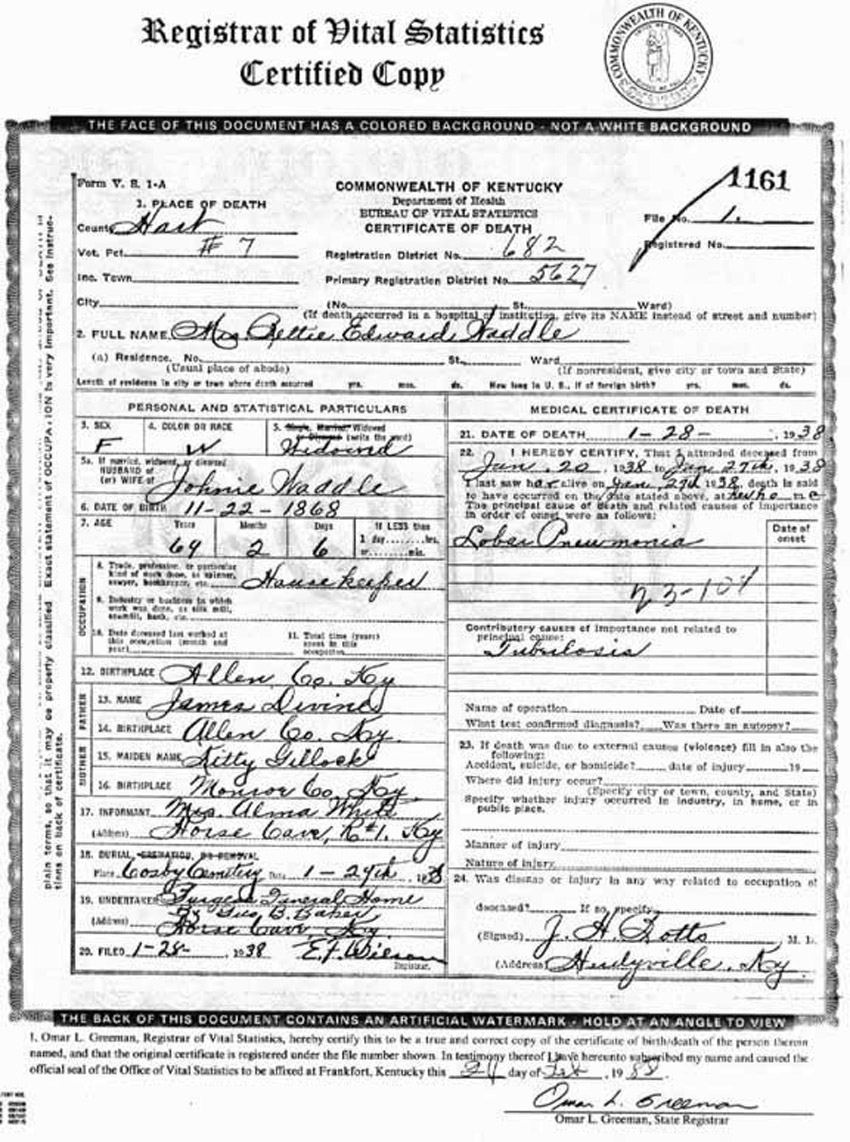 Registrar of Vital Statistics
Certified Copy
COMMONWEALTH OF KENTUCKY
THE FACE OF THIS DOCUMENT HAS A COLORED BACKGROUND - NOT A WHITE BACKGROUND
Form V. S. 1-A
COMMONWEALTH OF KENTUCKY
Department of Health
BUREAU OF VITAL STATISTICS
CERTIFICATE OF DEATH
1161
File No. 1.
Registered No.
1. PLACE OF DEATH
County Hart
Vot. Pct. # 7
Registration District No. 682
Inc. Town
Primary Registration District No. 5627
City (No. St. Ward)
(If death occurred in a hospital or institution, give its NAME instead of street and number)
2. FULL NAME Mrs Bettie Edward Waddle
(a) Residence. No. St., Ward
(Usual place of abode) (If nonresident, give city or town and State)
Length of residence in city or town where death occurred yrs. mos. ds. How long in U. S., if of foreign birth? yrs. mos. ds.
PERSONAL AND STATISTICAL PARTICULARS
3. SEX 4. COLOR OR RACE 5. Single, Married, Widowed
or Divorced (write the word)
F W Widowed
5a. If married, widowed, or divorced
HUSBAND of
(or) WIFE of Johnie Waddle
6. DATE OF BIRTH 11-22-1868
7. AGE Years Months Days If LESS than
1 day hrs.
or min.
69 2 6
OCCUPATION
8. Trade, profession, or particular
kind of work done, as spinner,
sawyer, bookkeeper, etc. Housekeeper
9. Industry or business in which
work was done, as silk mill,
sawmill, bank, etc.
10. Date deceased last worked at
this occupation (month and
year)
11. Total time (years)
spent in this
occupation
12. BIRTHPLACE Allen Co. Ky
FATHER
13. NAME James Divine
14. BIRTHPLACE Allen Co. Ky.
MOTHER
15. MAIDEN NAME Kitty Gillock
16. BIRTHPLACE Monroe Co. Ky
17. INFORMANT Mrs. Alma White
(Address) Horse Cave, R#1. Ky
18. BURIAL, CREMATION, OR REMOVAL
Place Cosby Cemetery Date 1-29th, 1938
19. UNDERTAKER Funeral Home
By Geo B. Baker
(Address) Horse Cave, Ky.
20. FILED 1-28-, 1938 E.F. Wilson
Registrar.
MEDICAL CERTIFICATE OF DEATH
21. DATE OF DEATH 1-28-, 1938
22. I HEREBY CERTIFY, That I attended deceased from
Jan. 20, 1938 to Jan 27th, 1938
I last saw her alive on Jan. 27th 1938, death is said
to have occurred on the date stated above, at
The principal cause of death and related causes of importance
in order of onset were as follows:
Date of
onset
Lobar Pneumonia
Contributory causes of importance not related to
principal cause:
Tubulosis
Name of operation Date of
What test confirmed diagnosis? Was there an autopsy?
23. If death was due to external causes (violence) fill in also the
following:
Accident, suicide, or homicide? date of injury 19
Where did injury occur?
(Specify city or town, county, and State)
Specify whether injury occurred in industry, in home, or in
public place.
Manner of injury
Nature of injury
24. Was disease or injury in any way related to occupation of
deceased? If so, specify
(Signed) M. D.
(Address) Hardyville, Ky.
THE BACK OF THIS DOCUMENT CONTAINS AN ARTIFICIAL WATERMARK - HOLD AT AN ANGLE TO VIEW
I, Omar L. Greeman, Registrar of Vital Statistics, hereby certify this to be a true and correct copy of the certificate of birth/death of the person therein
named, and that the original certificate is registered under the file number shown. In testimony thereof I have hereunto subscribed my name and caused the
official seal of the Office of Vital Statistics to be affixed at Frankfort, Kentucky this 24 day of Feb, 1988.
Omar L. Greeman
Omar L. Greeman, State Registrar